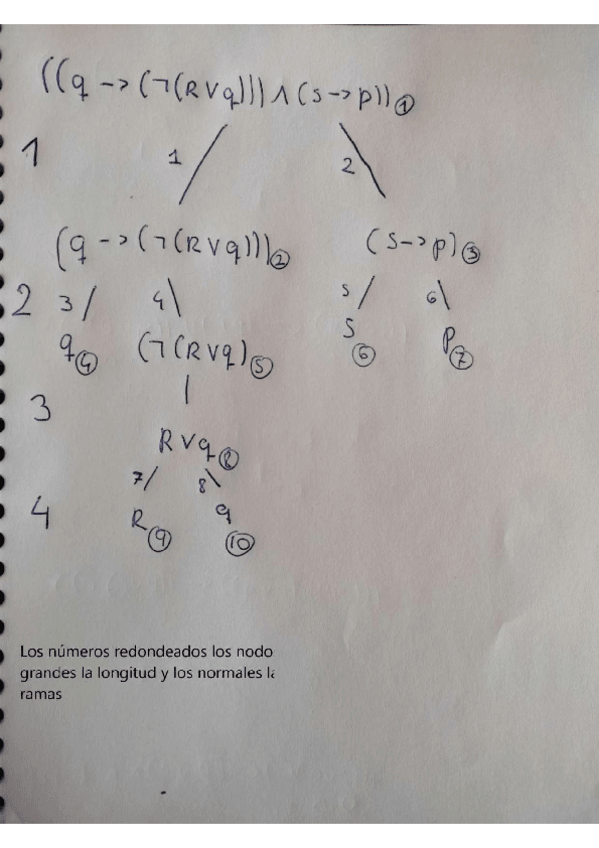 ((q -> (¬(R ∨ q))) ∧ (s -> p)) ①
1 1 2
(q -> (¬(R ∨ q))) ② (s -> p) ③
2 3 4 5 6
q ④ (¬(R ∨ q) ⑤ s ⑥ p ⑦
3
R ∨ q ⑧
7 8
4 R ⑨ q ⑩
Los números redondeados los nodo
grandes la longitud y los normales la
ramas